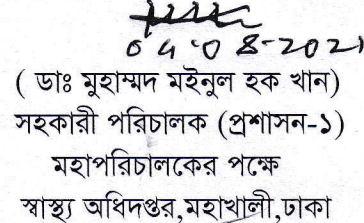 04.08-2021
( ডাঃ মুহাম্মদ মইনুল হক খান)
সহকারী পরিচালক (প্রশাসন-১)
মহাপরিচালকের পক্ষে
স্বাস্থ্য অধিদপ্তর,মহাখালী,ঢাকা